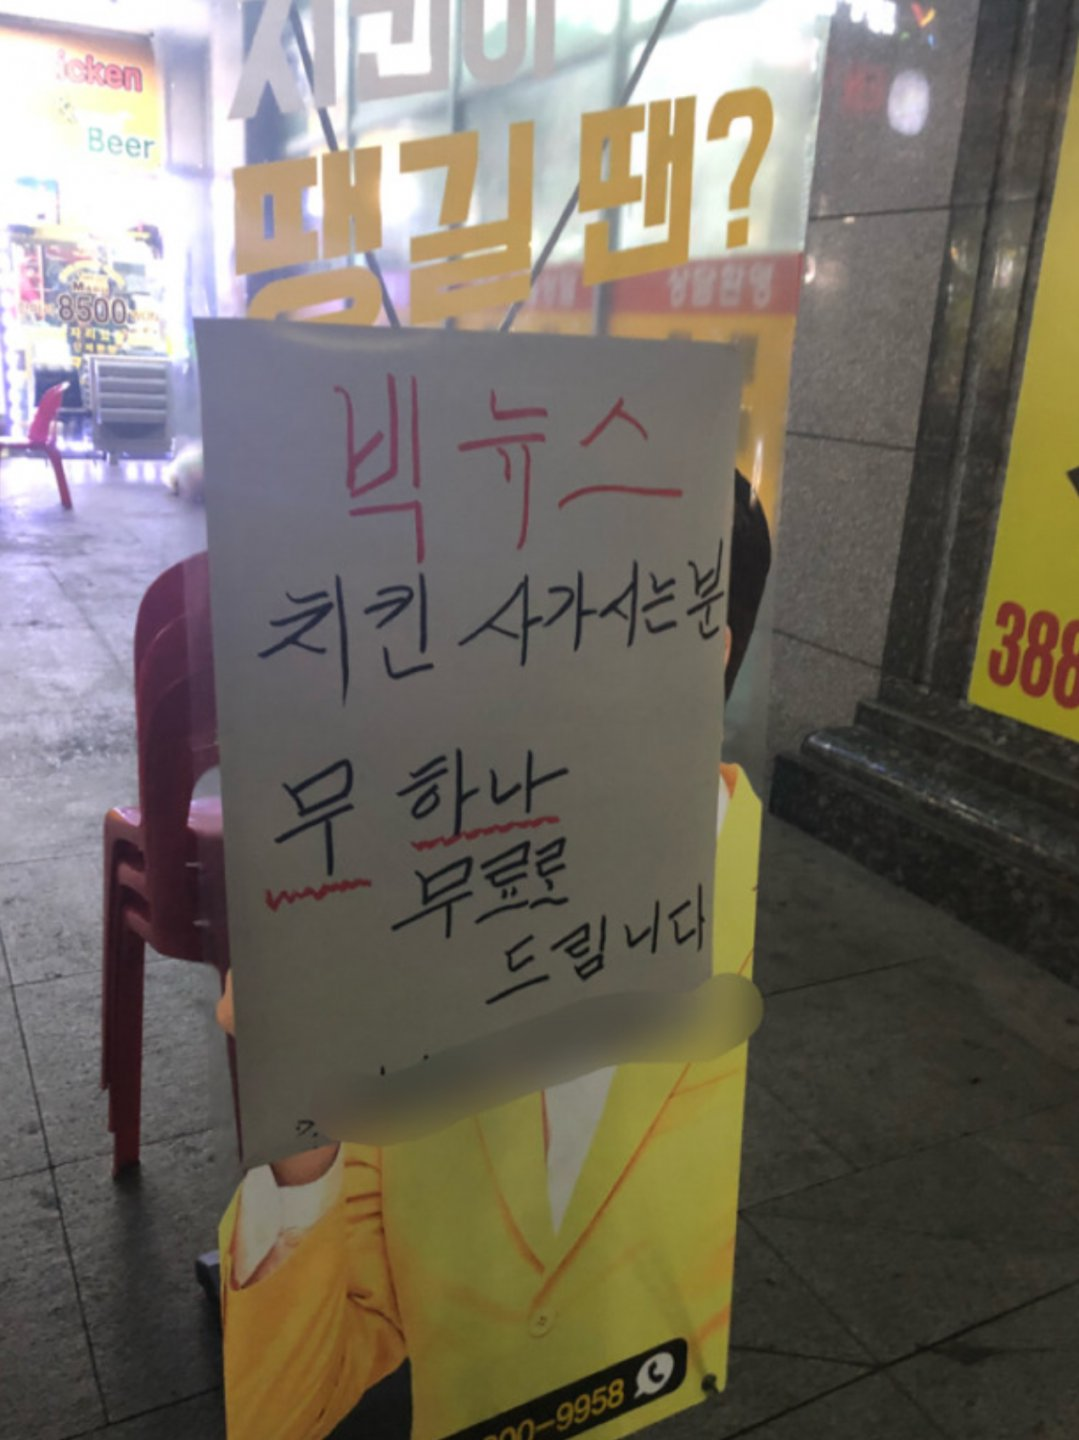 땡길 땐?
icken
Beer
8500
상담환영
빅뉴스
치킨 사가시는분
무 하나
무료로
드립니다
388
00-9958